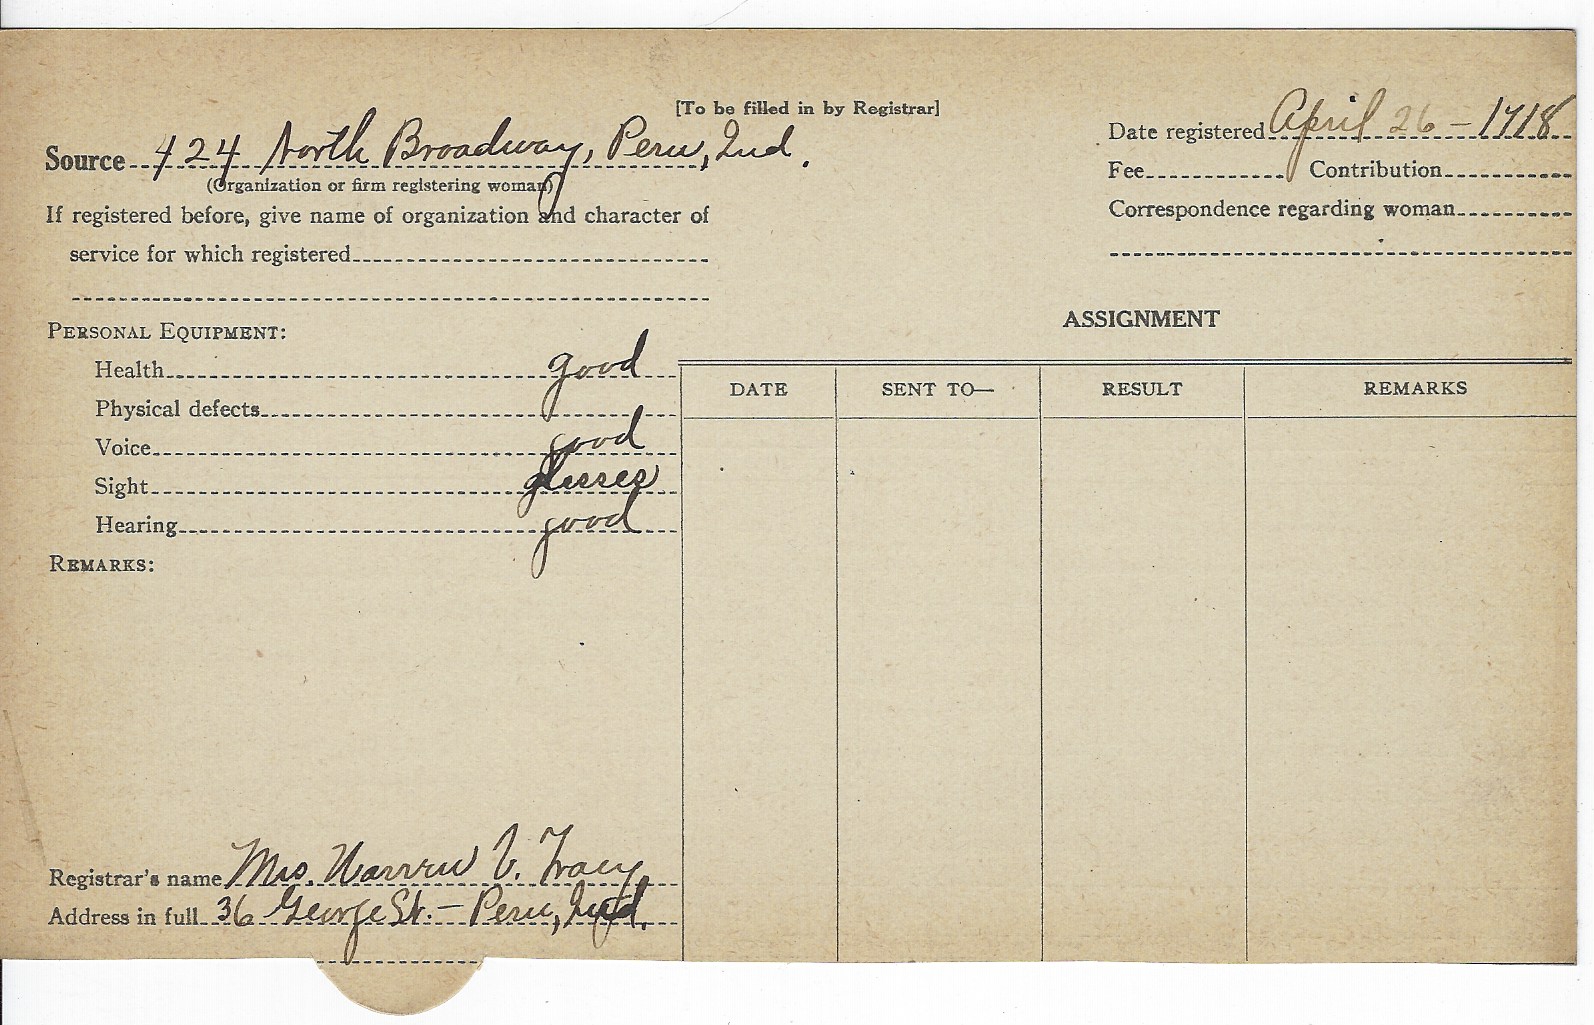 [To be filled in by Registrar]
Source 424 North Broadway, Peru, Ind.
(Organization or firm registering woman)
If registered before, give name of organization and character of
service for which registered
Date registered April 26 - 1918
Fee Contribution
Correspondence regarding woman
PERSONAL EQUIPMENT:
Health good
Physical defects
Voice good
Sight glasses
Hearing good
REMARKS:
ASSIGNMENT
DATE SENT TO— RESULT REMARKS
Registrar's name Mrs. Warren V. Tracy
Address in full 36 George St. - Peru, Ind.